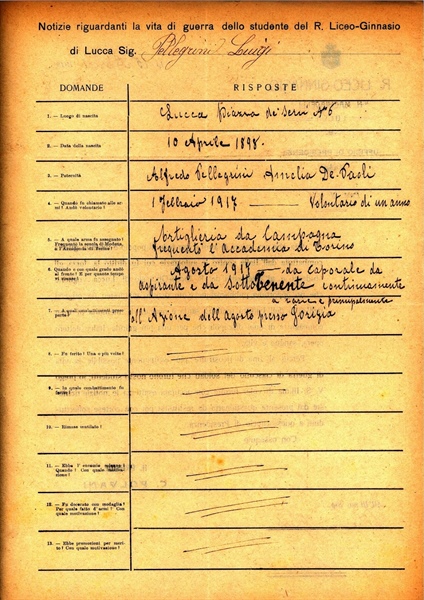 Notizie riguardanti la vita di guerra dello studente del R. Liceo-Ginnasio
di Lucca Sig. Pellegrini Luigi
DOMANDE
RISPOSTE
1. — Luogo di nascita
Lucca Piazza de' Servi N° 6
2. — Data della nascita
10 Aprile 1898.
3. — Paternità
Alfredo Pellegrini Amelia De-Paoli
4. — Quando fu chiamato alle
armi? Andò volontario?
1 Febbraio 1917 — Volontario di un anno
5. — A quale arma fu assegnato?
Frequentò la scuola di Modena,
l'Accademia di Torino?
Artiglieria da Campagna
frequentò l'Accademia di Torino
6. Quando e con quale grado andò
al fronte? E per quanto tempo
vi rimase?
Agosto 1917 — da caporale da
aspirante e da Sottotenente continuamente
7. — A quali combattimenti prese
parte?
a varie e principalmente
all'Azione dell'agosto presso Gorizia
8. — Fu ferito? Una o più volte?
9. — In quale combattimento fu
ferito?
10. — Rimase mutilato?
11. — Ebbe l'encomio solenne?
Quando? Con quale motivazione?
12. — Fu decorato con medaglia?
Per quale fatto d'armi? Con
quale motivazione?
13. — Ebbe promozioni per merito?
Con quale motivazione?